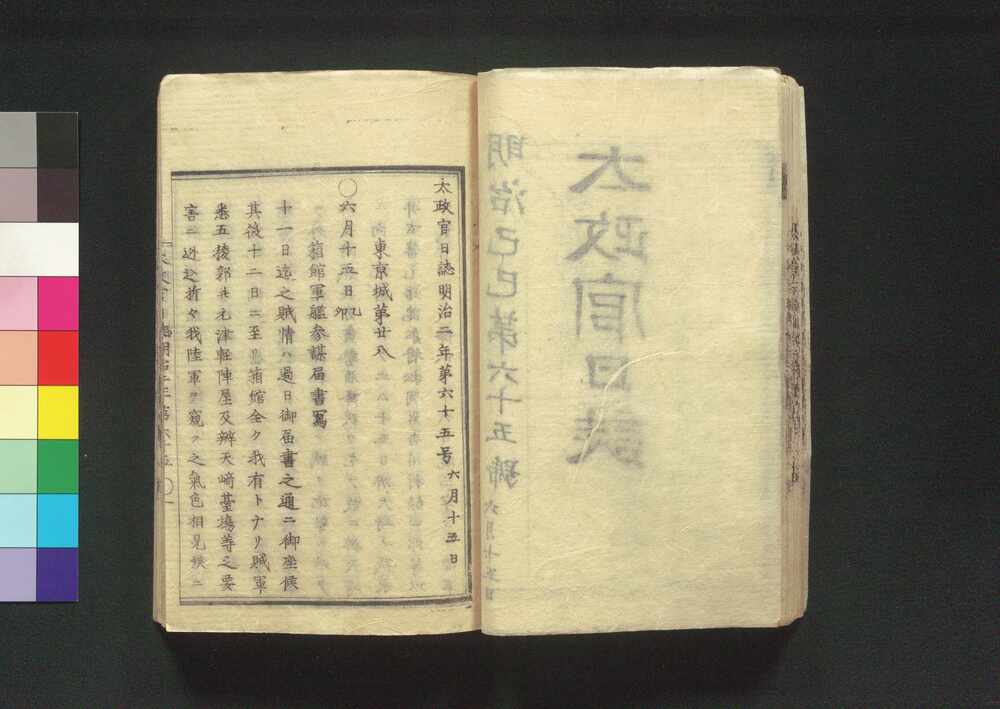 太政官日誌
明治己巳第六十五號 六月十五日
太政官日誌明治二年第六十五号 六月十五日
東京城第廿八
〇六月十五日 己卯
箱館軍艦参謀届書写
十一日迄之賊情ハ過日御届書之通ニ御座候
其後十二日ニ至箱館全ク我有トナリ賊軍
悉五稜郭并元津軽陣屋及辨天崎臺場等之要
害ニ迯込折々我陸軍ヲ窺フ之氣色相見候ニ